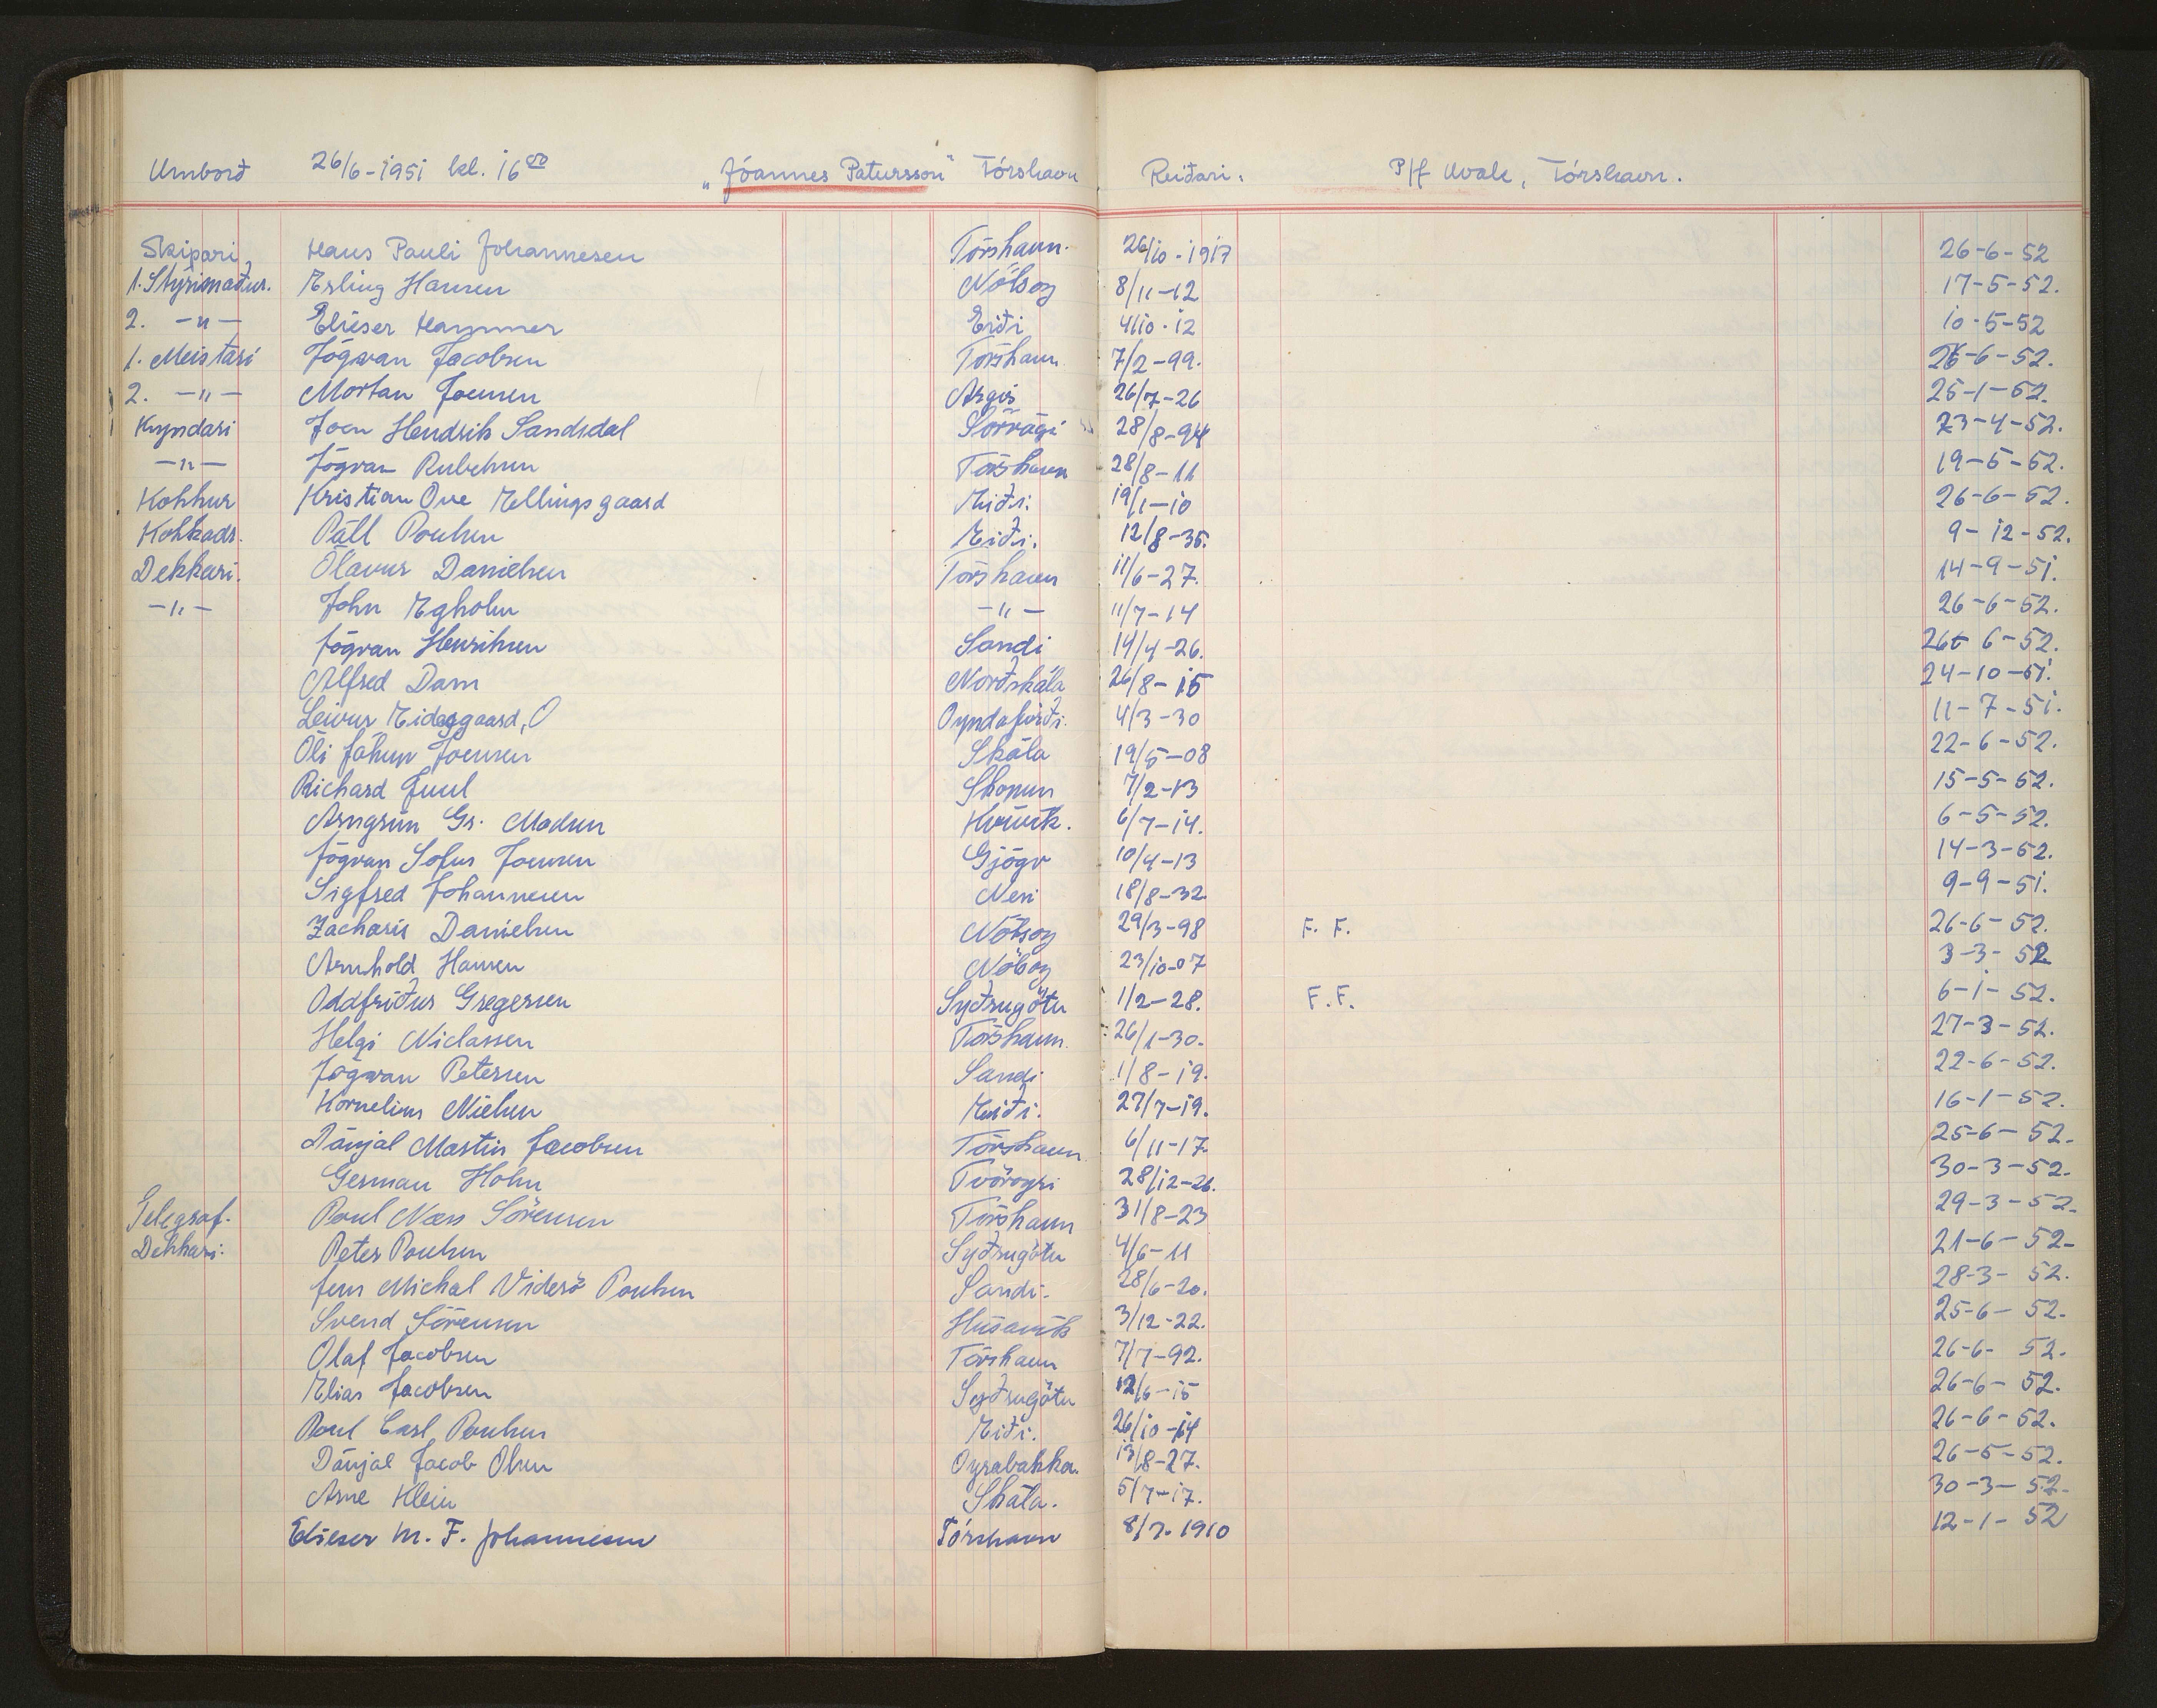 Umborð 26/6-1951 kl. 16⁰⁰ „Jóannes Patursson" Tórshavn Reiðari. P/f Kvale, Tórshavn.
Skipari Hans Pauli Johannesen Tórshavn. 26/10-1917 26-6-52
1. Stýrimaður. Erling Hansen Nólsoy 8/11-12 17-5-52.
2. -"- Elieser Hammer Eiði 4/10-12 10-5-52
1. Meistari Jógvan Jacobsen Tórshavn 7/2-99. 26-6-52.
2. -"- Mortan Joensen Argir 26/7-26 25-1-52.
Kyndari Joen Hendrik Sandsdal Sörvági 28/8-94 23-4-52.
-"- Jógvan Rubeksen Tórshavn 28/8-11 19-5-52.
Kokkur Kristian Ove Ellingsgaard Eiði. 19/1-10 26-6-52.
Kokkadr. Páll Poulsen Eiði. 12/8-35. 9-12-52.
Dekkari. Ólavur Danielsen Tórshavn 11/6-27. 14-9-51.
-"- John Egholm -"- 11/7-14 26-6-52.
Jógvan Henriksen Sandi 14/4-26. 26-6-52.
Alfred Dam Norðskála 26/8-15 24-10-51.
Leivur Eidesgaard, O Oyndafirði. 4/3-30 11-7-51.
Óli Jákup Joensen Skála 19/5-08 22-6-52.
Richard Juul Skopun 7/2-13 15-5-52.
Arngrím Gr. Madsen Hvívík. 6/7-14. 6-5-52.
Jógvan Sofus Joensen Gjógv 10/4-13 14-3-52.
Sigfred Johannesen Nesi 18/8-32 9-9-51.
Zacharis Danielsen Nólsoy 29/3-98 F. F. 26-6-52.
Arnhold Hansen Nólsoy 23/10-07 3-3-52
Oddfríður Gregersen Syðrugötu 1/2-28. F. F. 6-1-52.
Helgi Niclassen Tórshavn. 26/1-30. 27-3-52.
Jógvan Petersen Sandi 1/8-19. 22-6-52.
Kornelius Nielsen Eiði. 27/7-19. 16-1-52.
Dánjal Martin Jacobsen Tórshavn 6/11-17. 25-6-52.
German Holm Tvöroyri 28/12-26. 30-3-52.
Telegraf. Poul Næs Sörensen Tórshavn 31/8-23 29-3-52.
Dekkari. Peter Poulsen Syðrugötu 4/6-11 21-6-52.
Jens Michal Viderö Poulsen Sandi. 28/6-20. 28-3-52.
Svend Sörensen Húsavík 3/12-22. 25-6-52.
Olaf Jacobsen Tórshavn 7/7-92. 26-6-52.
Elias Jacobsen Syðrugötu 12/6-15 26-6-52.
Poul Carl Poulsen Eiði. 26/10-14 26-6-52.
Dánjal Jacob Olsen Oyrabakka. 13/8-27. 26-5-52.
Arne Klein Skála. 5/7-17. 30-3-52.
Elieser M. F. Johannesen Tórshavn 8/7-1910 12-1-52